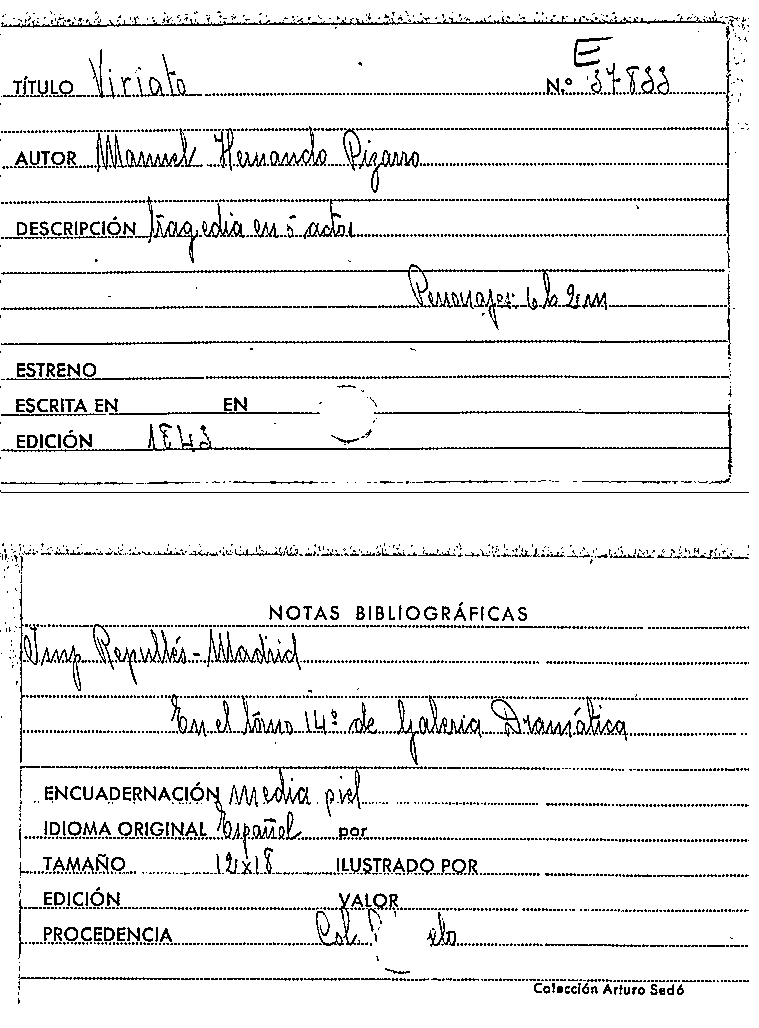 E
TÍTULO Viriato N.º 37833
AUTOR Manuel Hernando Pizarro
DESCRIPCIÓN tragedia en 5 actos
Personajes: 6 h 2 m
ESTRENO
ESCRITA EN EN
EDICIÓN 1843
NOTAS BIBLIOGRÁFICAS
Imp Repullés - Madrid
En el tomo 14º de Galeria Dramática
ENCUADERNACIÓN media piel
IDIOMA ORIGINAL Español por
TAMAÑO 12x18 ILUSTRADO POR
EDICIÓN VALOR
PROCEDENCIA Col.
Colección Arturo Sedó